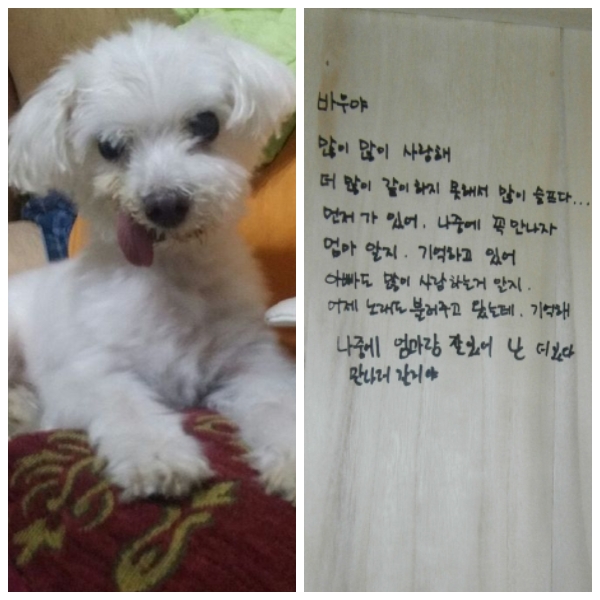 바우야
많이 많이 사랑해
더 많이 같이하지 못해서 많이 슬프다...
먼저 가 있어. 나중에 꼭 만나자
엄마 알지. 기억하고 있어
아빠도 많이 사랑하는거 알지.
어제 노래도 불러주고 했는데. 기억해
나중에 엄마랑 잘있어 난
만나러 갈게야